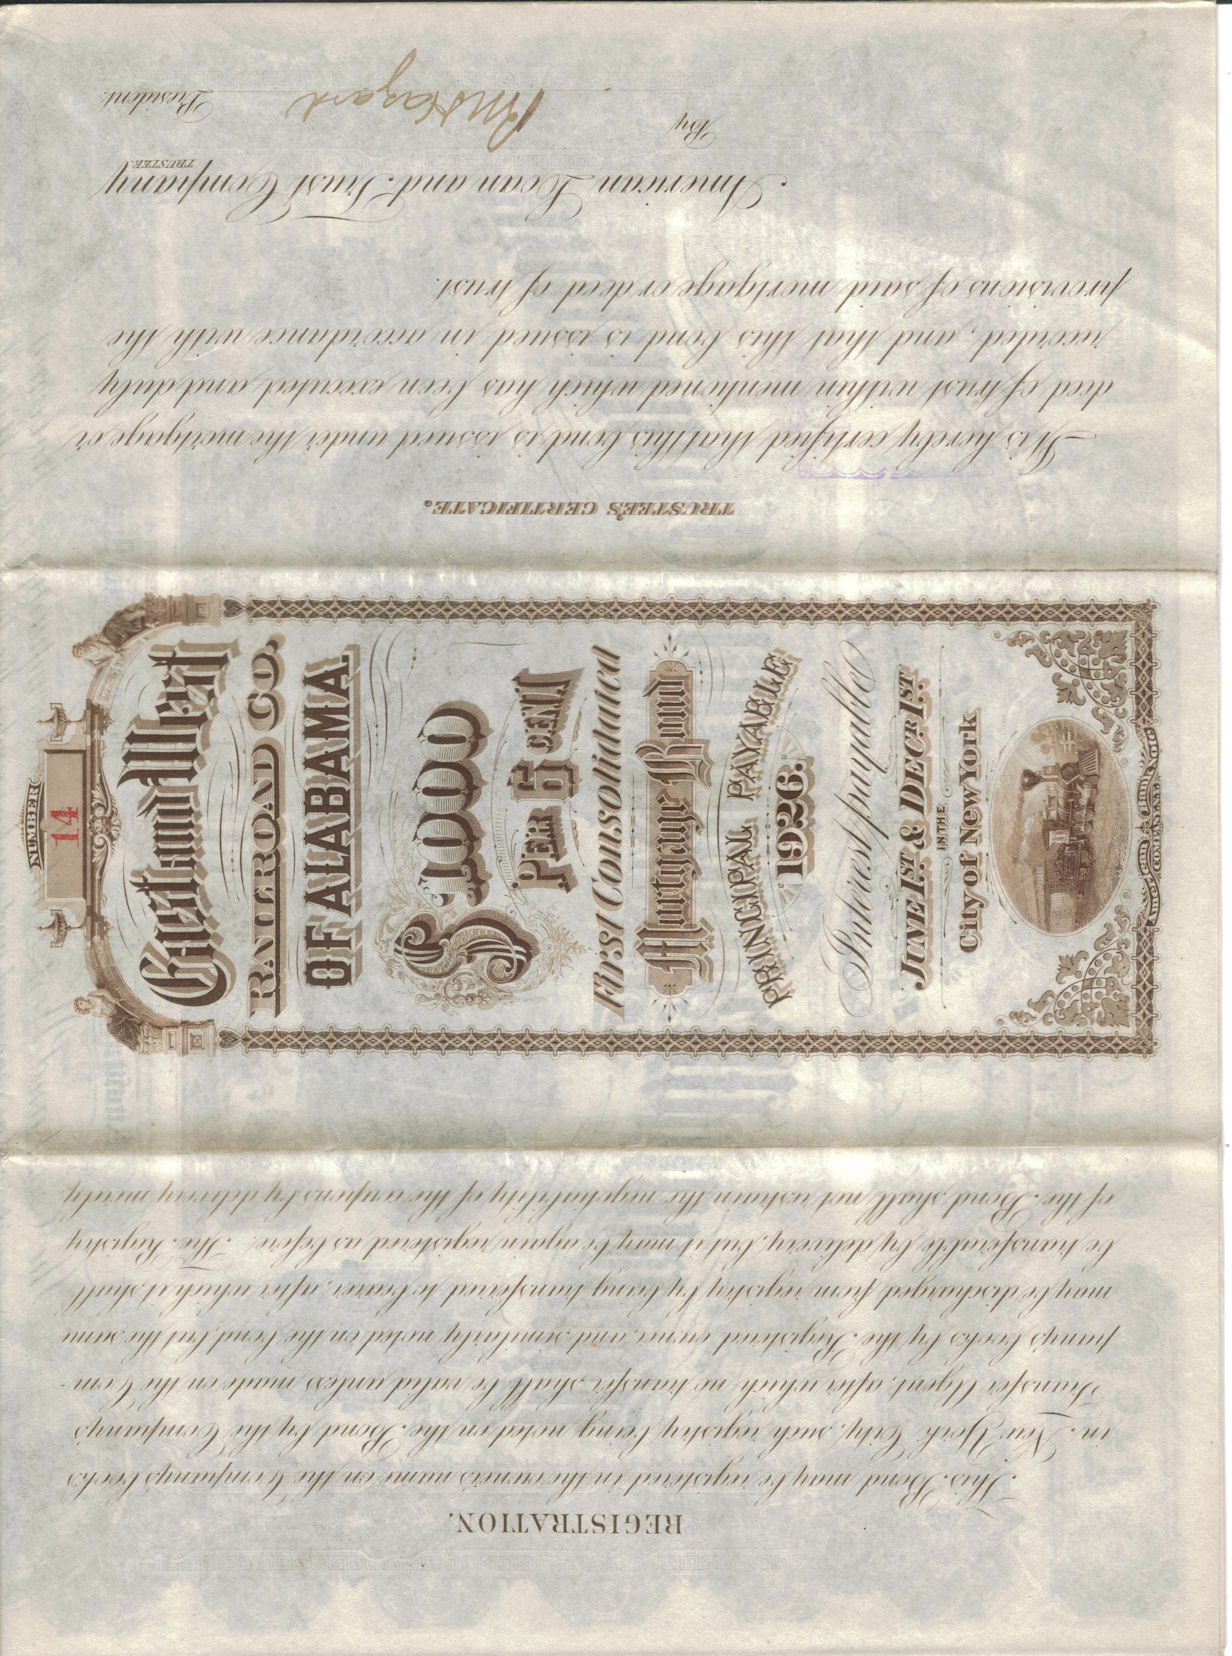 REGISTRATION.
This Bond may be registered in the owner's name on the Company's books
in New York City, such registry being noted on the Bond by the Company's
Transfer Agent, after which no transfer shall be valid unless made on the Com-
pany's books by the Registered owner, and similarly noted on the bond, but the same
may be discharged from registry by being transferred to bearer, after which it shall
be transferable by delivery, but it may be again registered as before. The Registry
of the Bond shall not restrain the negotiability of the coupons by delivery merely
NUMBER
14
East and West
RAILROAD CO.
OF ALABAMA
$1000
PER 6 CENT
First Consolidated
Mortgage Bond
PRINCIPAL PAYABLE
1926.
Interest payable
JUNE 1ST & DECR 1ST
IN THE
City of New York
American Bank Note Company New York
TRUSTEE'S CERTIFICATE.
It is hereby certified that this bond is issued under the mortgage or
deed of trust within mentioned which has been executed and duly
recorded, and that this bond is issued in accordance with the
provisions of said mortgage or deed of trust.
American Loan and Trust Company
TRUSTEE.
By
President.